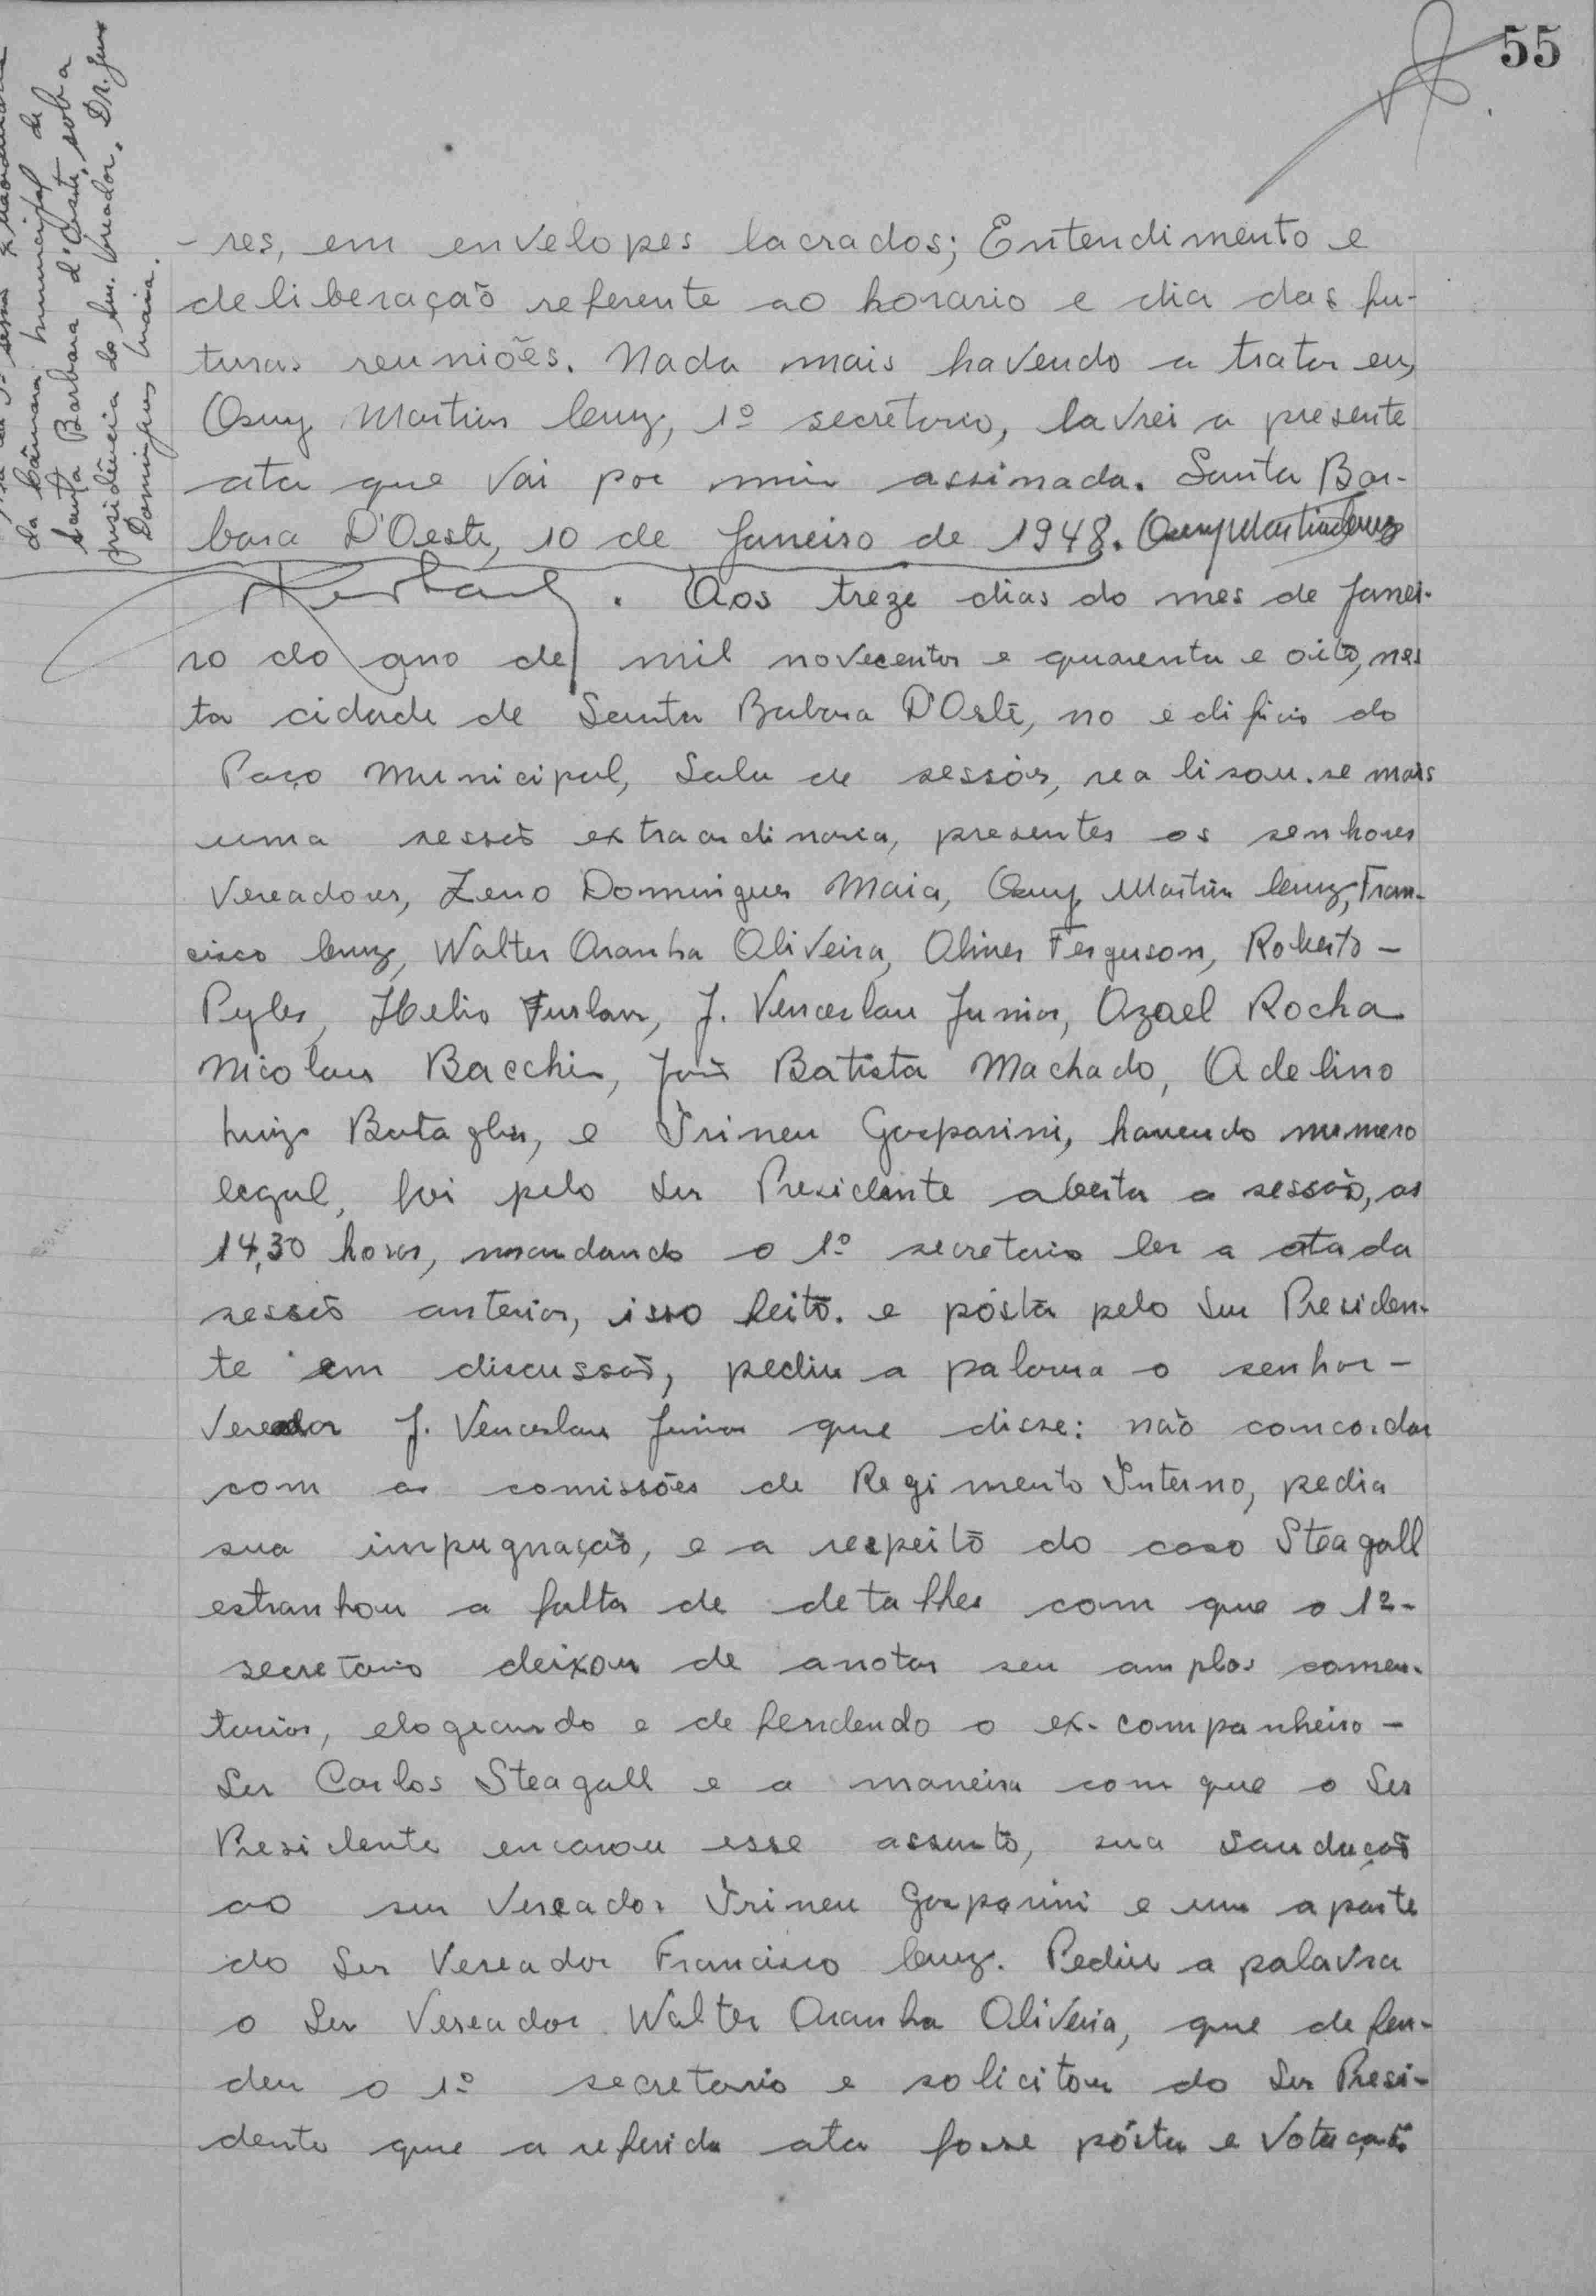 55
da Câmara municipal de
Santa Barbara d'Oeste, sob a
presidência do Snr. Vereador. Dr. Zeno
Domingues Maia.
-res, em envelopes lacrados; Entendimento e
deliberação referente ao horario e dia das fu-
turas reuniões. Nada mais havendo a tratar eu,
Osny Martins Cruz, 1º secretario, lavrei a presente
ata que vai por mim assinada. Santa Bar-
bara D'Oeste, 10 de Janeiro de 1948. Osny Martins Cruz
. Aos treze dias do mes de Janei-
ro do ano de mil novecentos e quarenta e oito, nes
ta cidade de Santa Barbara D'Oeste, no edificio do
Paço Municipal, Sala de sessões, realisou-se mais
uma sessão extraordinaria, presentes os senhores
Vereadores, Zeno Domingues Maia, Osny Martins Cruz, Fran-
cisco Cruz, Walter Aranha Oliveira, Oliver Ferguson, Roberto -
Pyles, Helio Furlan, J. Venceslau Junior, Azael Rocha
Nicolau Bacchin, João Batista Machado, Adelino
Luizo Bataglia, e Irineu Gasparini, havendo numero
legal, foi pelo Snr Presidente aberta a sessão, as
14,30 horas, mandando o 1º secretario ler a ata da
sessão anterior, isso feito. e pósta pelo Snr Presiden-
te em discussão, pediu a palavra o senhor -
Vereador J. Venceslau Junior que disse: não concordar
com as comissões de Regimento Interno, pedia
sua impugnação, e a respeito do caso Steagall
estranhou a falta de detalhes com que o 1º-
secretario deixou de anotar seu amplos comen-
tarios, elogeando e defendendo o ex-companheiro -
Snr Carlos Steagall e a maneira com que o Snr
Presidente encarou esse assunto, sua saudação
ao snr Vereador Irineu Gasparini e um aparte
do Snr Vereador Francisco Cruz. Pediu a palavra
o Snr Vereador Walter Aranha Oliveira, que defen-
deu o 1º secretario e solicitou do Snr Presi-
dente que a referida ata fosse pósta e Votação